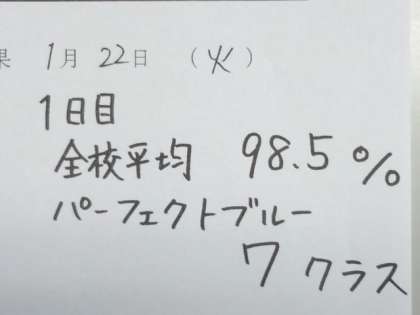 果 1月 22日 (火)
1日目
全校平均 98.5%
パーフェクトブルー
7 クラス